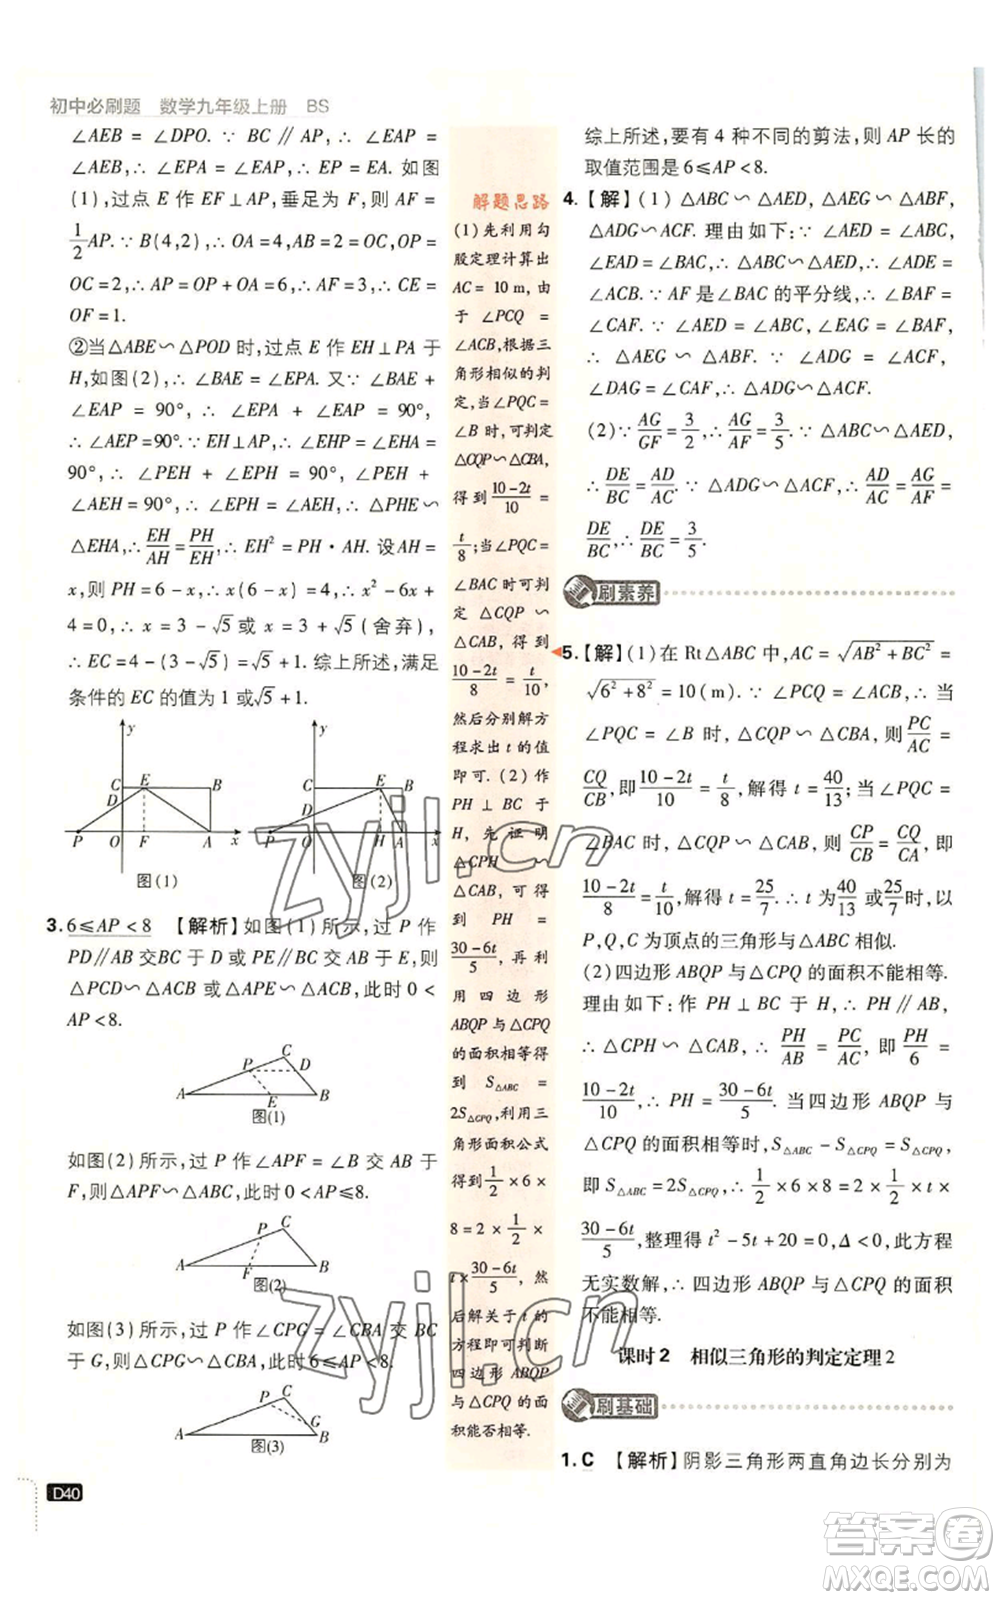 初中必刷题 数学九年级上册 BS
∠AEB = ∠DPO. ∵ BC∥AP, ∴ ∠EAP
= ∠AEB, ∴ ∠EPA = ∠EAP, ∴ EP = EA. 如图
(1),过点 E 作 EF⊥AP,垂足为 F,则 PF =
1/2 AP. ∵ B(4,2), ∴ OA = 4, AB = 2 = OC, ∵ P
OC=2,∴ AP=OP+OA=6,∴ AF=3,∴ CE=
OF=1.
②当△ABE∽△POD时,过点 E 作 EH⊥PA 于
H,如图(2),∴ ∠BAE = ∠EPA. 又 ∵ ∠BAE
+ ∠EAP = 90°, ∴ ∠EPA + ∠EAP = 90°, ∴
∠AEP=90°. ∵ EH⊥AP,∴ ∠EHP=∠EHA=
90°, ∴ ∠PEH + ∠EPH = 90°, ∵ ∠PEH +
∠AEH = 90°, ∴ ∠EPH = ∠AEH, ∴ △PHE∽
△EHA,∴ EH/AH = PH/EH, ∴ EH² = PH·AH. 设AH=
x,则PH=6-x,∴ x(6-x)=2²,∴ x²-6x+
4=0,解得x=3-√5或x=3+√5(舍弃).
∴ EC=4-(3-√5)=√5+1. 综上所述,满足
条件的 EC 的值为 1 或√5+1.
y y
C E B C E B
D D
P O F A x P O H A x
图(1) 图(2)
3. 6≤AP<8 【解析】如图(1)所示,过 P 作
PD∥AB 交BC于 D 或 PE∥BC 交 AB 于 E,则
△PCD∽△ACB 或 △APE∽△ACB,此时 0 <
AP<8.
C P D A E B
图(1)
如图(2)所示,过 P 作∠APF = ∠B 交 AB 于
F,则△APF∽△ABC,此时 0<AP≤8.
C P A F B
图(2)
如图(3)所示,过 P 作∠CPG = ∠CBA 交 BC
于 G,则△CPG∽△CBA,此时6≤AP<8.
P C G A B
图(3)
D40
解题思路
(1)先利用勾
股定理计算出
AC = 10 m,由
于 ∠PCQ =
∠ACB,根据三
角形相似的判
定,当∠PQC=
∠B 时,可判定
△CQP∽△CBA,
得到 (10-2t)/10 =
t/8;当∠PQC=
∠BAC时可判
定 △CQP ∽
△CAB, 得到
(10-2t)/8 = t/10,
然后分别解方
程求出 t 的值
即可. (2)作
PH ⊥ BC 于
H, 先 证 明
△CPH ∽
△CAB, 可得
到 PH =
(30-6t)/5, 再利
用四边形
ABQP与△CPQ
的面积相等得
到 S△ABC =
2S△CPQ,利用三
角形面积公式
得到 1/2 × 6 ×
8 = 2 × 1/2 ×
t × (30-6t)/5, 然
后解关于t的
方程即可判断
四边形 ABQP
与△CPQ 的面
积能否相等.
综上所述,要有 4 种不同的剪法,则 AP 长的
取值范围是 6≤AP<8.
4. 【解】(1) △ABC∽△AED, △AEG∽△ABF,
△ADG∽△ACF. 理由如下: ∵ ∠AED = ∠ABC,
∠EAD = ∠BAC, ∴ △ABC∽△AED, ∴ ∠ADG =
∠ACB. ∵ AF 是∠BAC 的平分线,∴ ∠BAF =
∠CAF. ∵ ∠AED = ∠ABC, ∠EAG = ∠BAF,
∴ △AEG ∽ △ABF. ∵ ∠ADG = ∠ACF,
∠DAG = ∠CAF, ∴ △ADG∽△ACF.
(2)∵ AG/GF = 3/2, ∴ AG/AF = 3/5. ∵ △ABC∽△AED,
∴ DE/BC = AD/AC. ∵ △ADG∽△ACF, ∴ AD/AC = AG/AF =
DE/BC, ∴ DE/BC = 3/5.
刷素养
5. 【解】(1)在 Rt△ABC 中,AC = √(AB²+BC²) =
√(6²+8²) = 10(m). ∵ ∠PCQ = ∠ACB, ∴ 当
∠PQC = ∠B 时,△CQP ∽ △CBA,则 PC/AC =
CQ/CB,即 (10-2t)/10 = t/8,解得 t = 40/13; 当∠PQC =
∠BAC 时,△CPQ∽△CBA,则 CP/CB = CQ/CA,即
(10-2t)/8 = t/10,解得 t = 25/7. ∴ t 为 40/13 或 25/7 时,以
P,Q,C 为顶点的三角形与△ABC 相似.
(2)四边形 ABQP 与△CPQ 的面积不能相等.
理由如下:作 PH⊥BC 于 H,∴ PH∥AB,
∴ △CPH ∽ △CAB, ∴ PH/AB = PC/AC, 即 PH/6 =
(10-2t)/10, ∴ PH = (30-6t)/5. 当四边形 ABQP 与
△CPQ 的面积相等时,S△ABC - S△CPQ = S△CPQ,
即 S△ABC = 2S△CPQ, ∴ 1/2 × 6 × 8 = 2 × 1/2 × t ×
(30-6t)/5,整理得 t²-5t+20=0,Δ<0,此方程
无实数解,∴ 四边形 ABQP 与△CPQ 的面积
不能相等.
课时2 相似三角形的判定定理2
刷基础
1. C 【解析】阴影三角形两直角边长分别为
zyjl.cn
zyjl.cn
答案卷
MXQE.COM